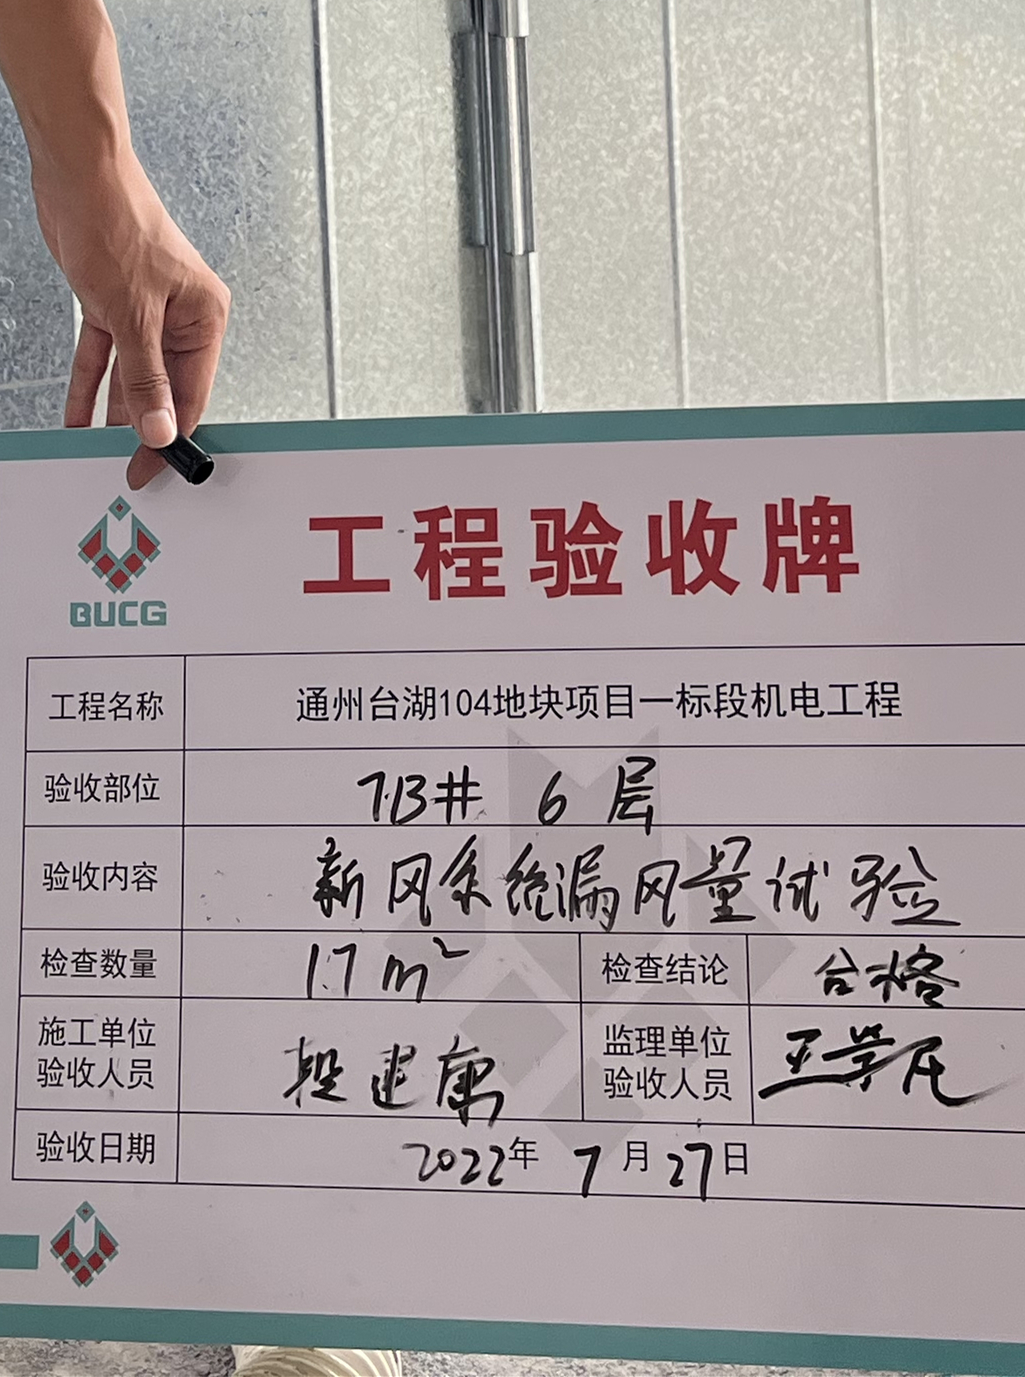 BUCG
工程验收牌
工程名称 通州台湖104地块项目一标段机电工程
验收部位 7B# 6层
验收内容 新风系统漏风量试验
检查数量 17m² 检查结论 合格
施工单位验收人员 段建康 监理单位验收人员
验收日期 2022年7月27日